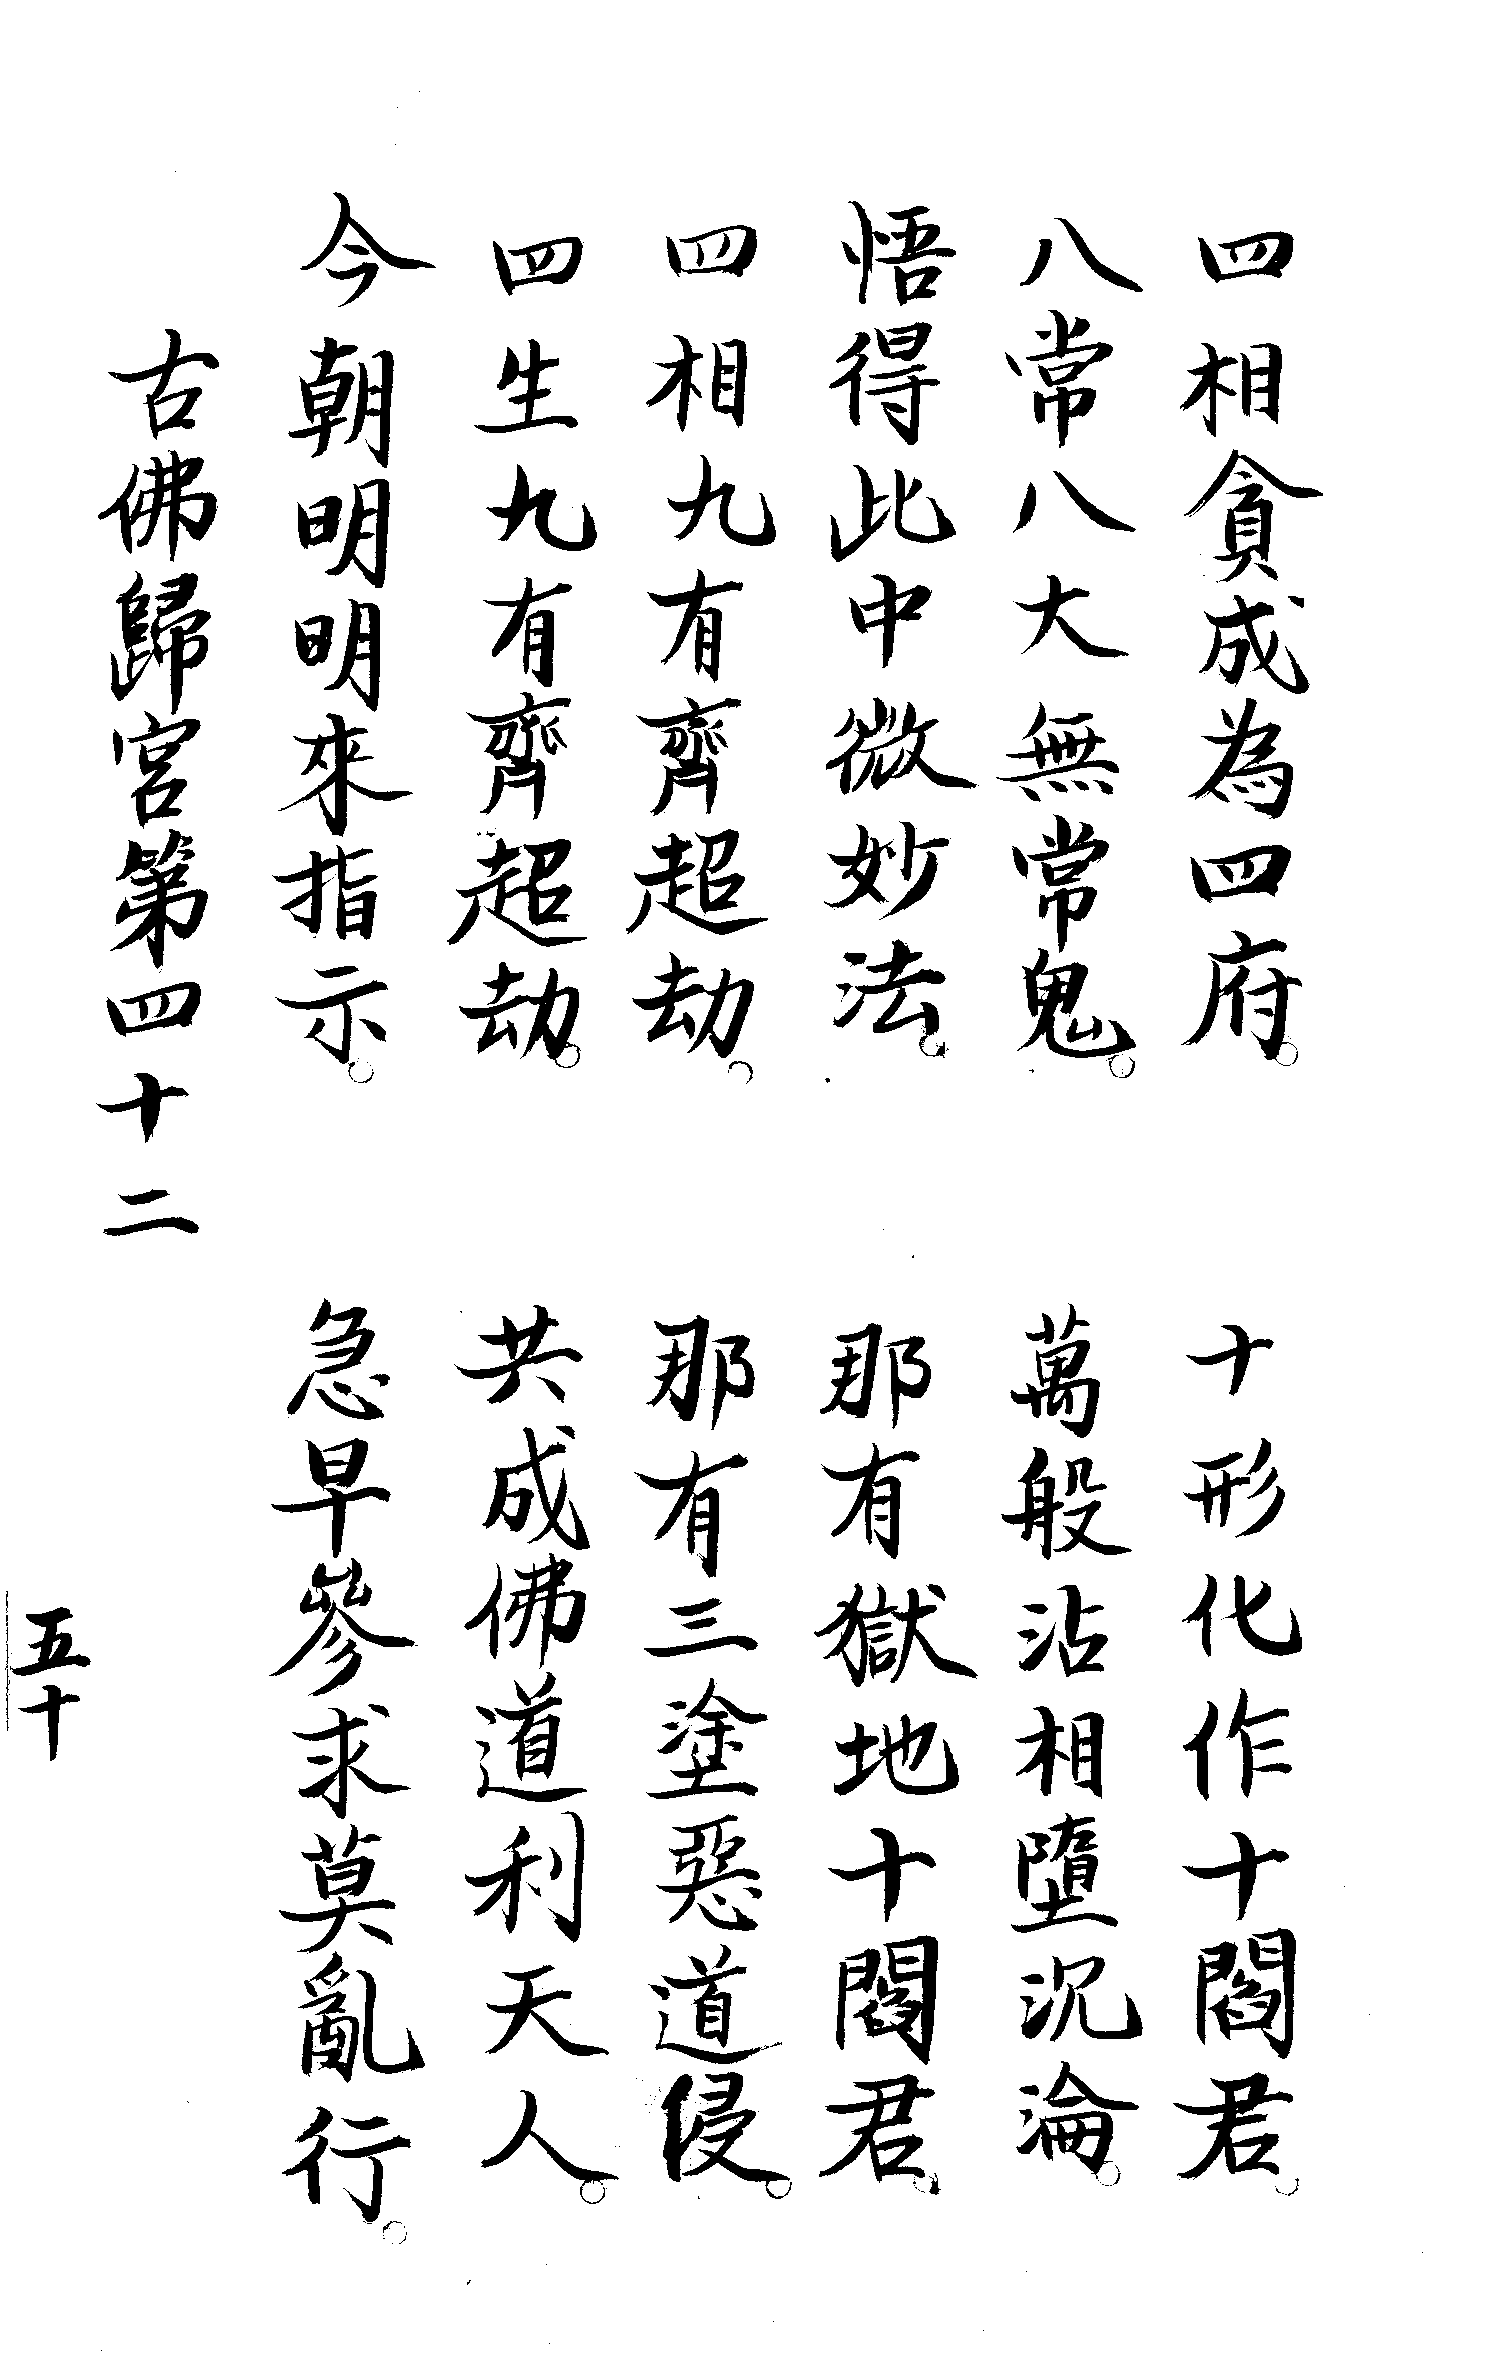 四相貪成為四府。十形化作十閻君。
八常八大無常鬼。萬般沾相墮沉淪。
悟得此中微妙法。那有獄地十閻君。
四相九有齊超劫。那有三塗惡道侵。
四生九有齊超劫。共成佛道利天人。
今朝明明來指示。急早參求莫亂行。
古佛歸宮第四十二
五十